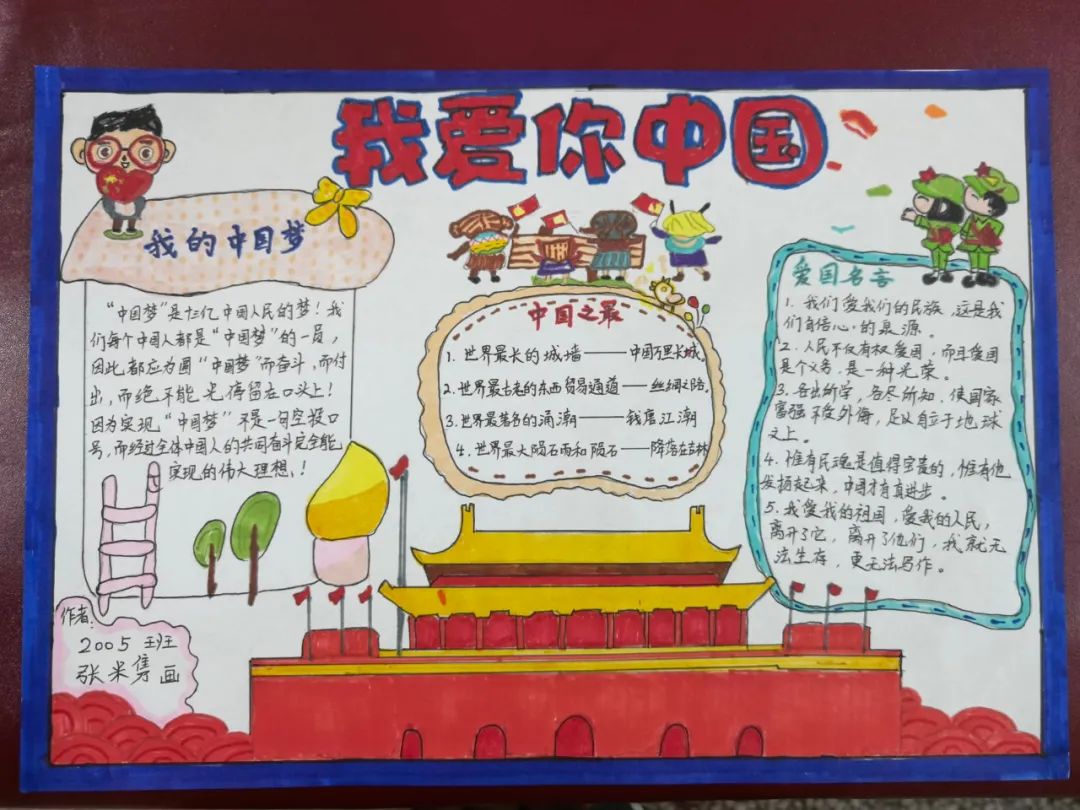 我爱你中国
我的中国梦
“中国梦”是十亿中国人民的梦！我
们每个中国人都是“中国梦”的一员，
因此都应为圆“中国梦”而奋斗，而付
出，而绝不能光停留在口头上！
因为实现“中国梦”不是一句空投口
号，而经过全体中国人的共同奋斗完全能
实现的伟大理想、！
作者：
2005班
张米隽画
中国之最
1. 世界最长的城墙——中国万里长城。
2. 世界最古老的东西贸易通道——丝绸之路。
3. 世界最著名的涌潮——钱唐江潮
4. 世界最大陨石雨和陨石——降落在吉林
爱国名言
1. 我们爱我们的民族，这是我
们自信心的泉源。
2. 人民不仅有权爱国，而且爱国
是个义务，是一种光荣。
3. 各出所学，各尽所知，使国家
富强不受外侮，足以自立于地球
之上。
4. 惟有民魂是值得宝贵的，惟有他
发扬起来，中国才有真进步。
5. 我爱我的祖国，爱我的人民，
离开了它，离开了他们，我就无
法生存，更无法写作。